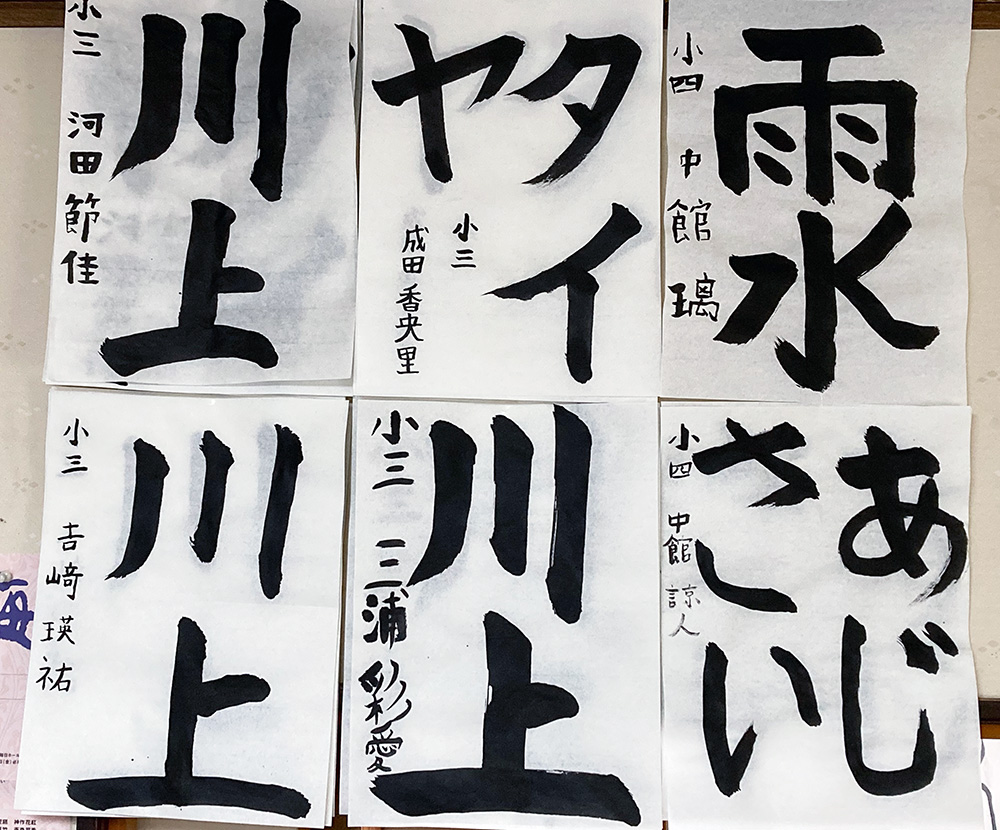 雨水
小四 中館 璃
タイ
ヤ
小三
成田 香央里
川上
小三 河田 節佳
あじ
さい
小四 中館 諒人
川上
小三 三浦 彩愛
川上
小三 吉﨑 瑛祐